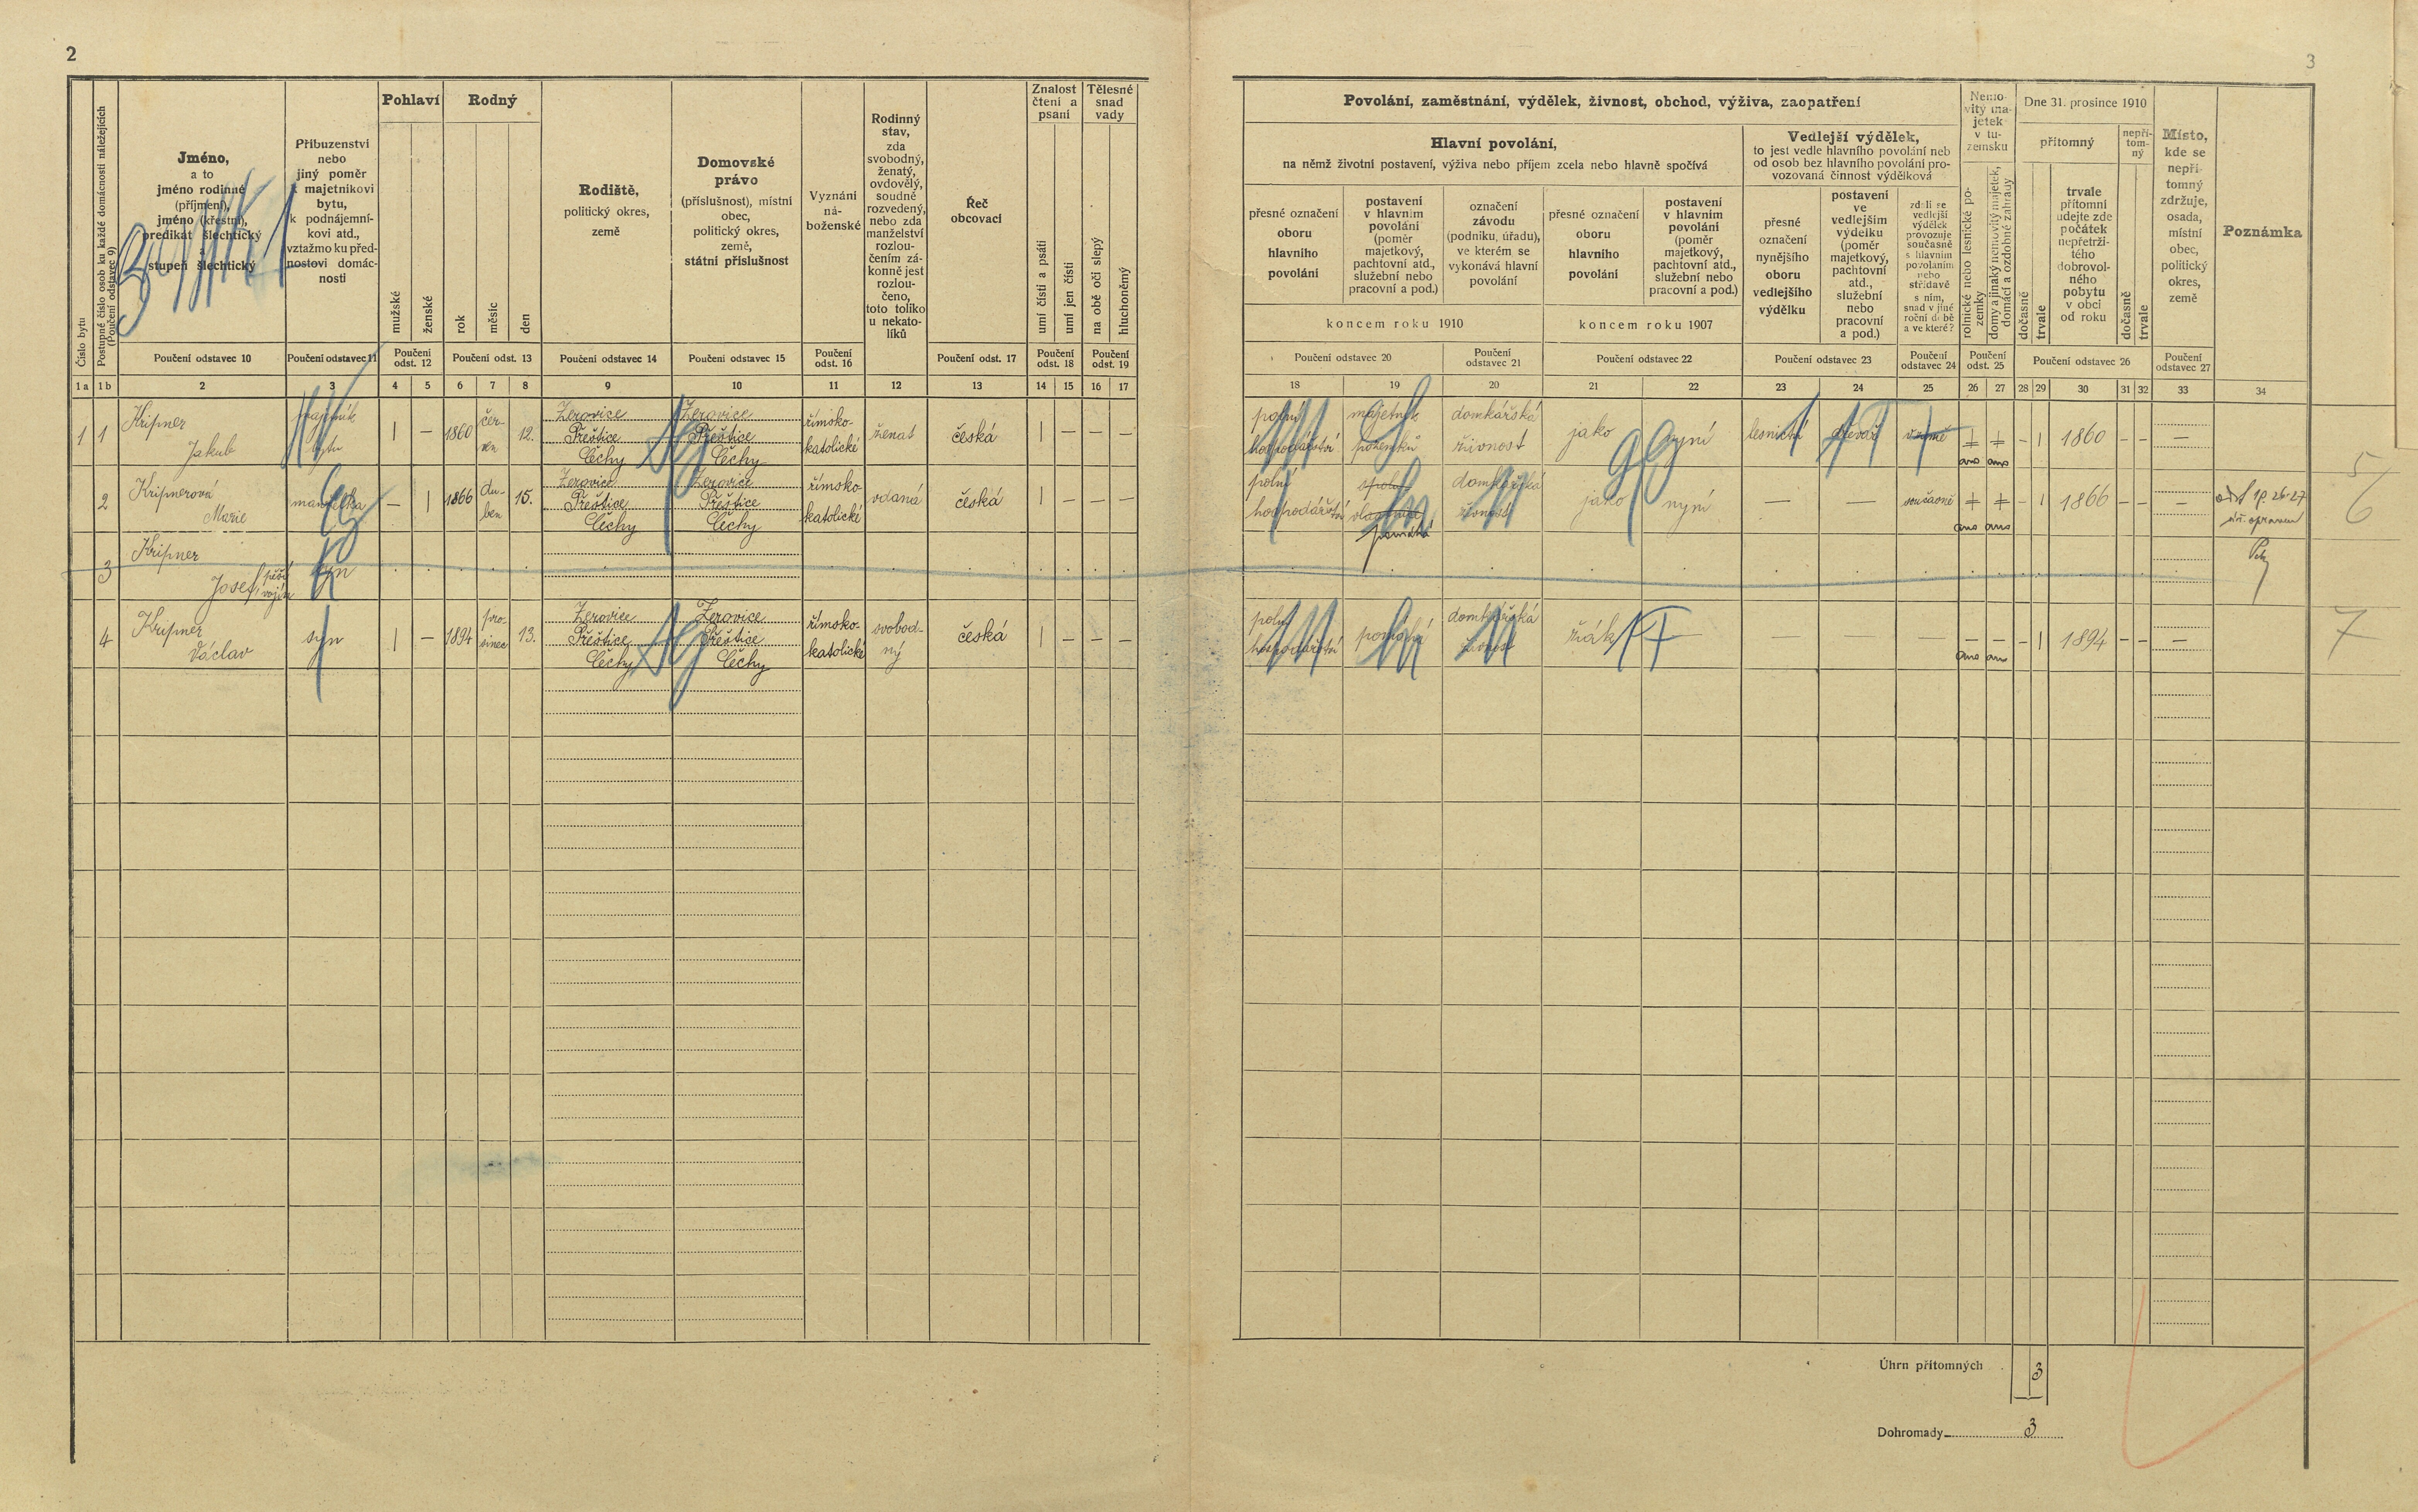 2
3
Číslo bytu
Postupné číslo osob ku každé domácnosti náležejících
(Poučení odstavec 9)
Jméno,
a to
jméno rodinné
(příjmení),
jméno (křestní),
predikát šlechtický
a
stupeň šlechtický
Příbuzenství
nebo
jiný poměr
k majetníkovi
bytu,
k podnájemní-
kovi atd.,
vztažmo ku před-
nostovi domác-
nosti
Pohlaví
mužské
ženské
Rodný
rok
měsíc
den
Rodiště,
politický okres,
země
Domovské
právo
(příslušnost), místní
obec,
politický okres,
země,
státní příslušnost
Vyznání
ná-
boženské
Rodinný
stav,
zda
svobodný,
ženatý,
ovdovělý,
soudně
rozvedený,
nebo zda
manželství
rozlou-
čením zá-
konně jest
rozlou-
čeno,
toto toliko
u nekato-
líků
Řeč
obcovací
Znalost
čtení a
psaní
umí čísti a psáti
umí jen čísti
Tělesné
snad
vady
na obě oči slepý
hluchoněmý
Poučení odstavec 10
Poučení odstavec 11
Poučení
odst. 12
Poučení odst. 13
Poučení odstavec 14
Poučení odstavec 15
Poučení
odst. 16
Poučení odst. 17
Poučení
odst. 18
Poučení
odst. 19
1 a 1 b 2 3 4 5 6 7 8 9 10 11 12 13 14 15 16 17
Povolání, zaměstnání, výdělek, živnost, obchod, výživa, zaopatření
Hlavní povolání,
na němž životní postavení, výživa nebo příjem zcela nebo hlavně spočívá
Vedlejší výdělek,
to jest vedle hlavního povolání neb
od osob bez hlavního povolání pro-
vozovaná činnost výdělková
přesné označení
oboru
hlavního
povolání
postavení
v hlavním
povolání
(poměr
majetkový,
pachtovní atd.,
služební nebo
pracovní a pod.)
označení
závodu
(podniku, úřadu),
ve kterém se
vykonává hlavní
povolání
přesné označení
oboru
hlavního
povolání
postavení
v hlavním
povolání
(poměr
majetkový,
pachtovní atd.,
služební nebo
pracovní a pod.)
koncem roku 1910
koncem roku 1907
přesné
označení
nynějšího
oboru
vedlejšího
výdělku
postavení
ve
vedlejším
výdělku
(poměr
majetkový,
pachtovní
atd.,
služební
nebo
pracovní
a pod.)
zdali se
vedlejší
výdělek
provozuje
současně
s hlavním
povoláním
nebo
střídavě
s ním,
snad v jiné
roční době
a ve které?
Nemo-
vitý ma-
jetek
v tu-
zemsku
rolnické nebo lesnické po-
zemky
domy a jinaký nemovitý majetek,
domácí a ozdobné zahrady
Dne 31. prosince 1910
přítomný
dočasně
trvale
trvale
přítomní
udejte zde
počátek
nepřetrži-
tého
dobrovol-
ného
pobytu
v obci
od roku
nepří-
tom-
ný
dočasně
trvale
Místo,
kde se
nepří-
tomný
zdržuje,
osada,
místní
obec,
politický
okres,
země
Poznámka
Poučení odstavec 20
Poučení
odstavec 21
Poučení odstavec 22
Poučení odstavec 23
Poučení
odstavec 24
Poučení
odst. 25
Poučení odstavec 26
Poučení
odstavec 27
18 19 20 21 22 23 24 25 26 27 28 29 30 31 32 33 34
1 1 Kripner
Jakub
majetník
bytu
1 — 1860 čer-
ven
12.
Žerovice
Přeštice
Čechy
Žerovice
Přeštice
Čechy
římsko-
katolické
ženat
česká
1 — — —
polní
hospodářství
majetník
pozemků
domkářská
živnost
jako nyní
lesnictví
ano ano
– 1 1860 – – —
5
2 Kripnerová
Marie
manželka
— 1 1866 du-
ben
15.
Žerovice
Přeštice
Čechy
Žerovice
Přeštice
Čechy
římsko-
katolické
vdaná
česká
1 — — —
polní
hospodářství
spolu-
vlastnice
pomáhá
domkářská
živnost
jako nyní
— —
současně
ano ano
– 1 1866 – – —
6
3 Kripner
Josef
syn
4 Kripner
Václav
syn
1 — 1894 pro-
sinec
13.
Žerovice
Přeštice
Čechy
Žerovice
Přeštice
Čechy
římsko-
katolické
svobod-
ný
česká
1 — — —
polní
hospodářství
pomáhá
domkářská
živnost
žák —
— — — – –
ano ano
– 1 1894 – – —
7
Úhrn přítomných 3
Dohromady 3